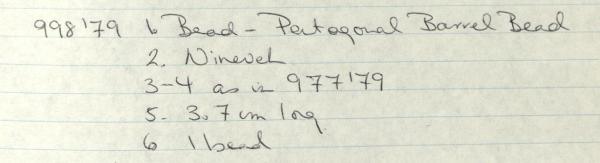 998'79 1. Bead - Pentagonal Barrel Bead
2. Nineveh
3-4 as in 977'79
5. 3.7 cm long
6 1 bead